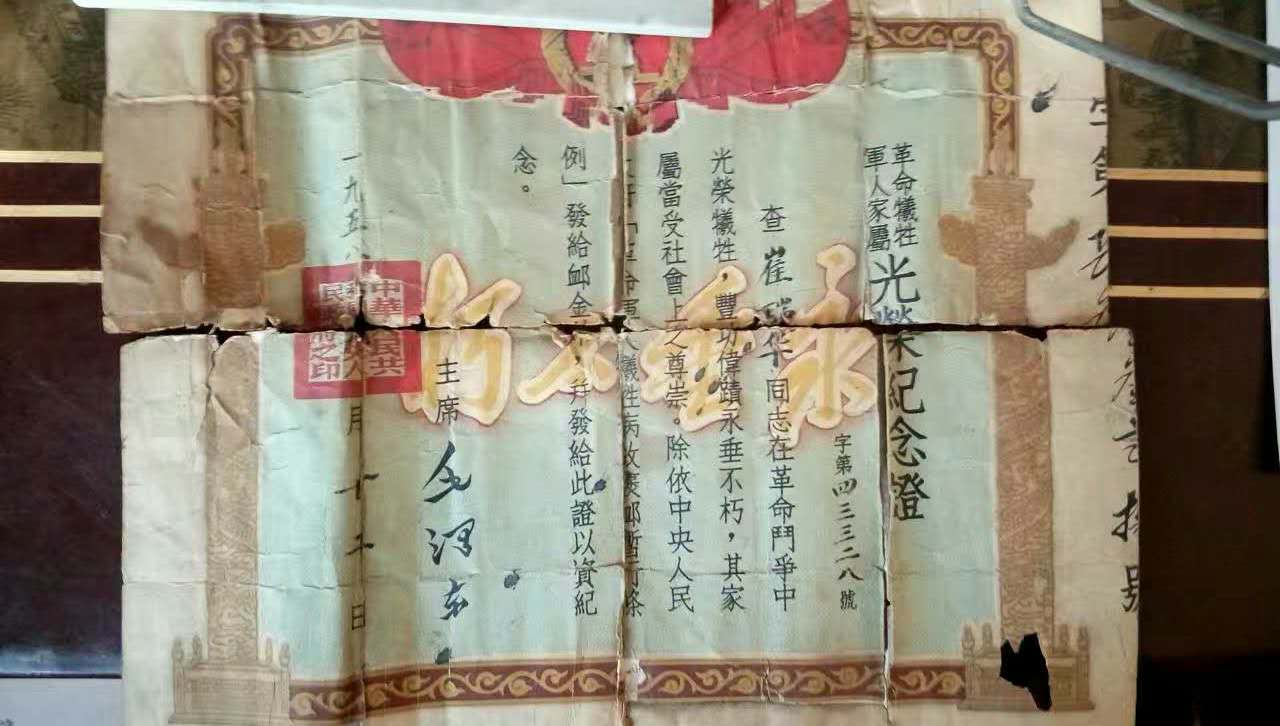 革命犧牲
軍人家屬
光榮紀念證
字第四三三二八號
查崔瑞华同志在革命鬥爭中
光榮犧牲,豐功偉蹟永垂不朽,其家
屬當受社會上之尊崇。除依中央人民
「革命軍人犧牲病故褒卹暫行條
例」發給卹金外,并發給此證以資紀
念。
主席毛澤东
一九五 月十二日
永垂不朽
中華人民共
民 人
府之印